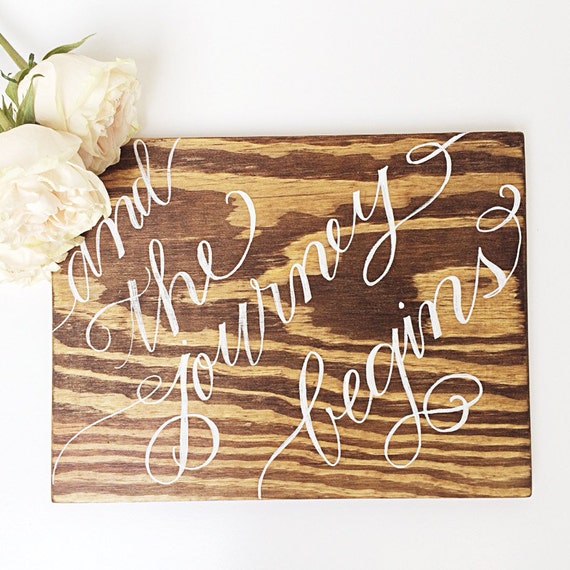 and
the
journey
begins